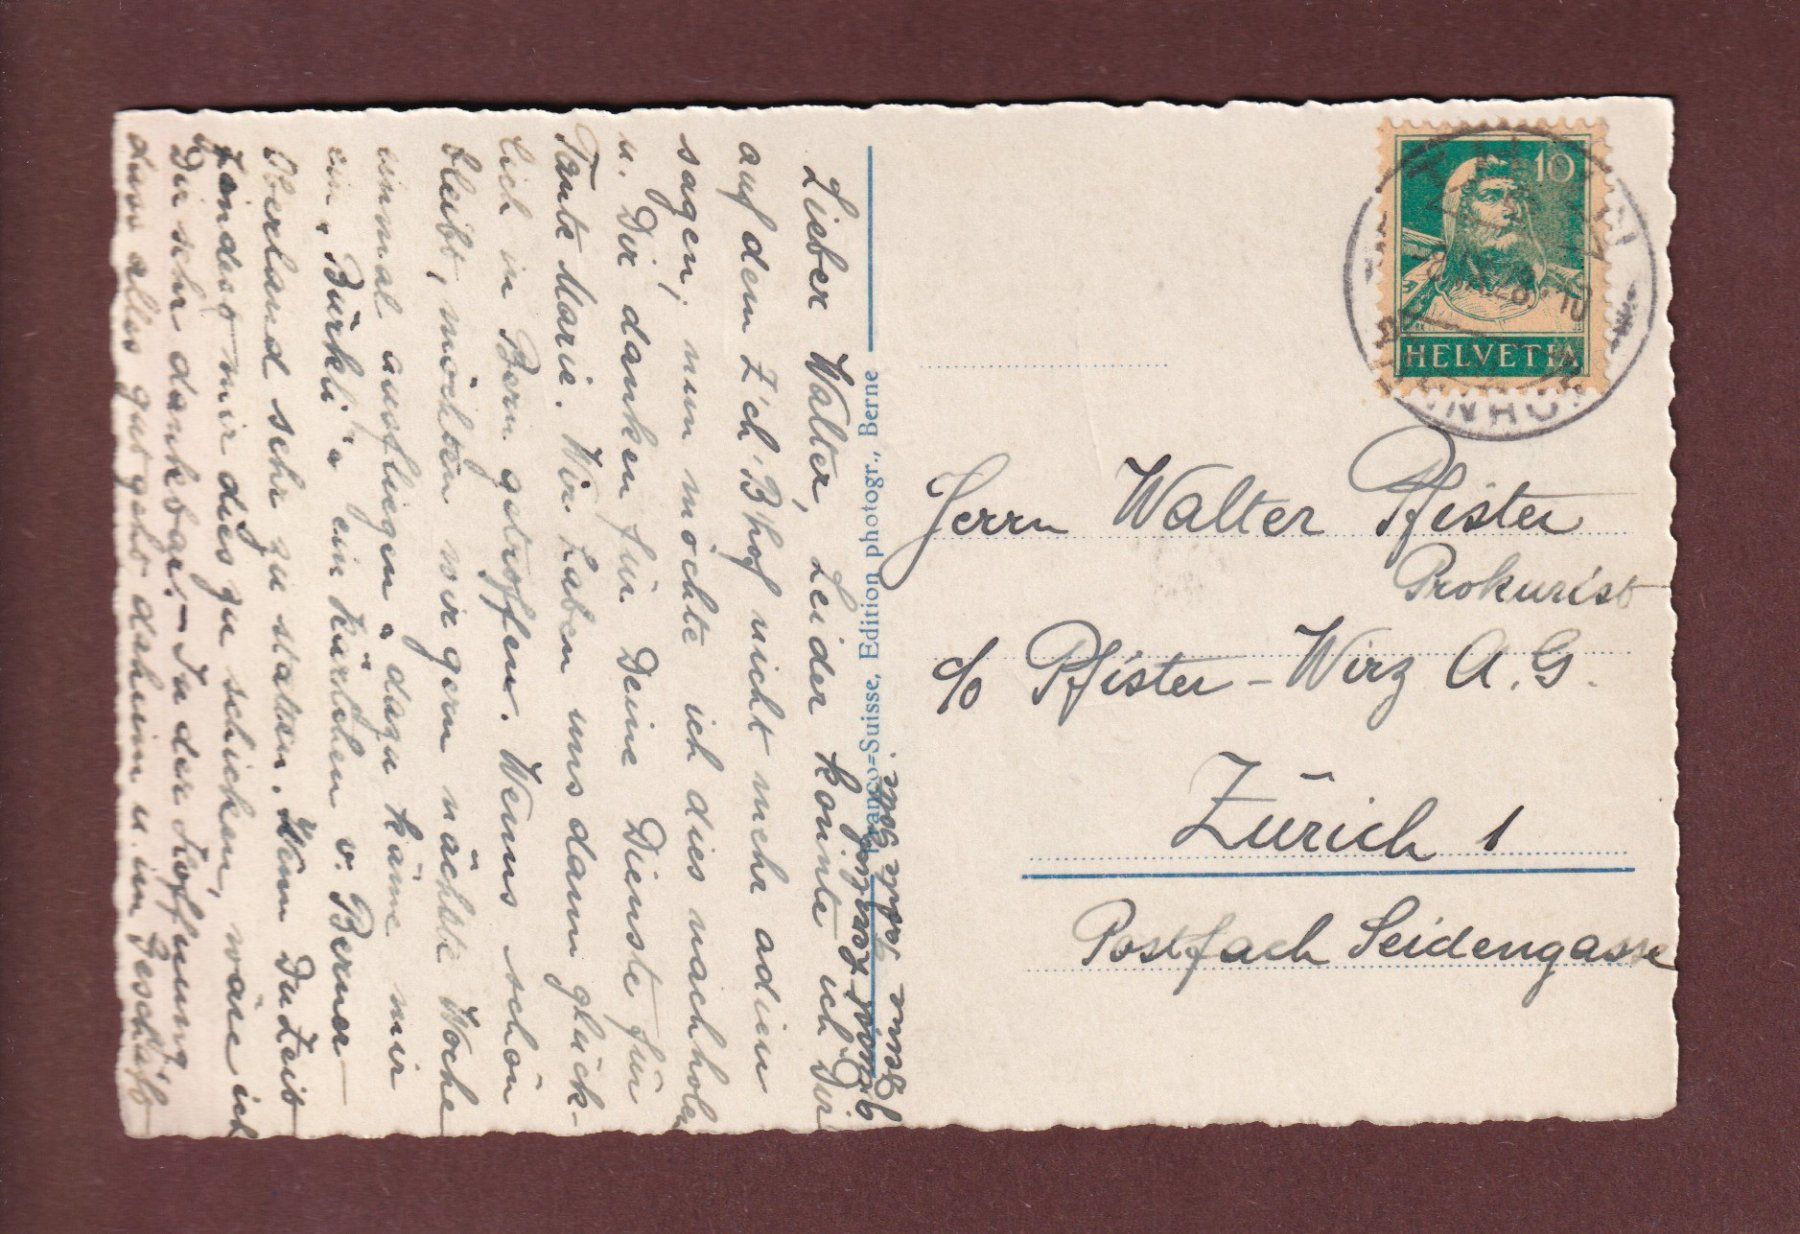 Lieber Walter, Leider konnte ich Dir
auf dem Z'ch' B'hof nicht mehr adieu
sagen, nun möchte ich dies nachholen
u. Dir danken für Deine Dienste für
Tante Marie. Wir haben uns dann glück-
lich in Bern getroffen. Wenns schön
bleibt, möchten wir gern nächste Woche
einmal ausfliegen & dazu käme mir
ein „Bürkli" & ein Kärtchen v. Berner
Oberland sehr zu statten. Wenn Du Zeit
findest mir dies zu schicken, wäre ich
Dir sehr dankbar. – In der Hoffnung,
dass alles gut geht daheim u. im Geschäft
Franco-Suisse, Edition photogr., Berne
10
HELVETIA
BAHNHOF
Herrn Walter Pfister
Prokurist
c/o Pfister-Wirz A.G.
Zürich 1
Postfach Seidengasse